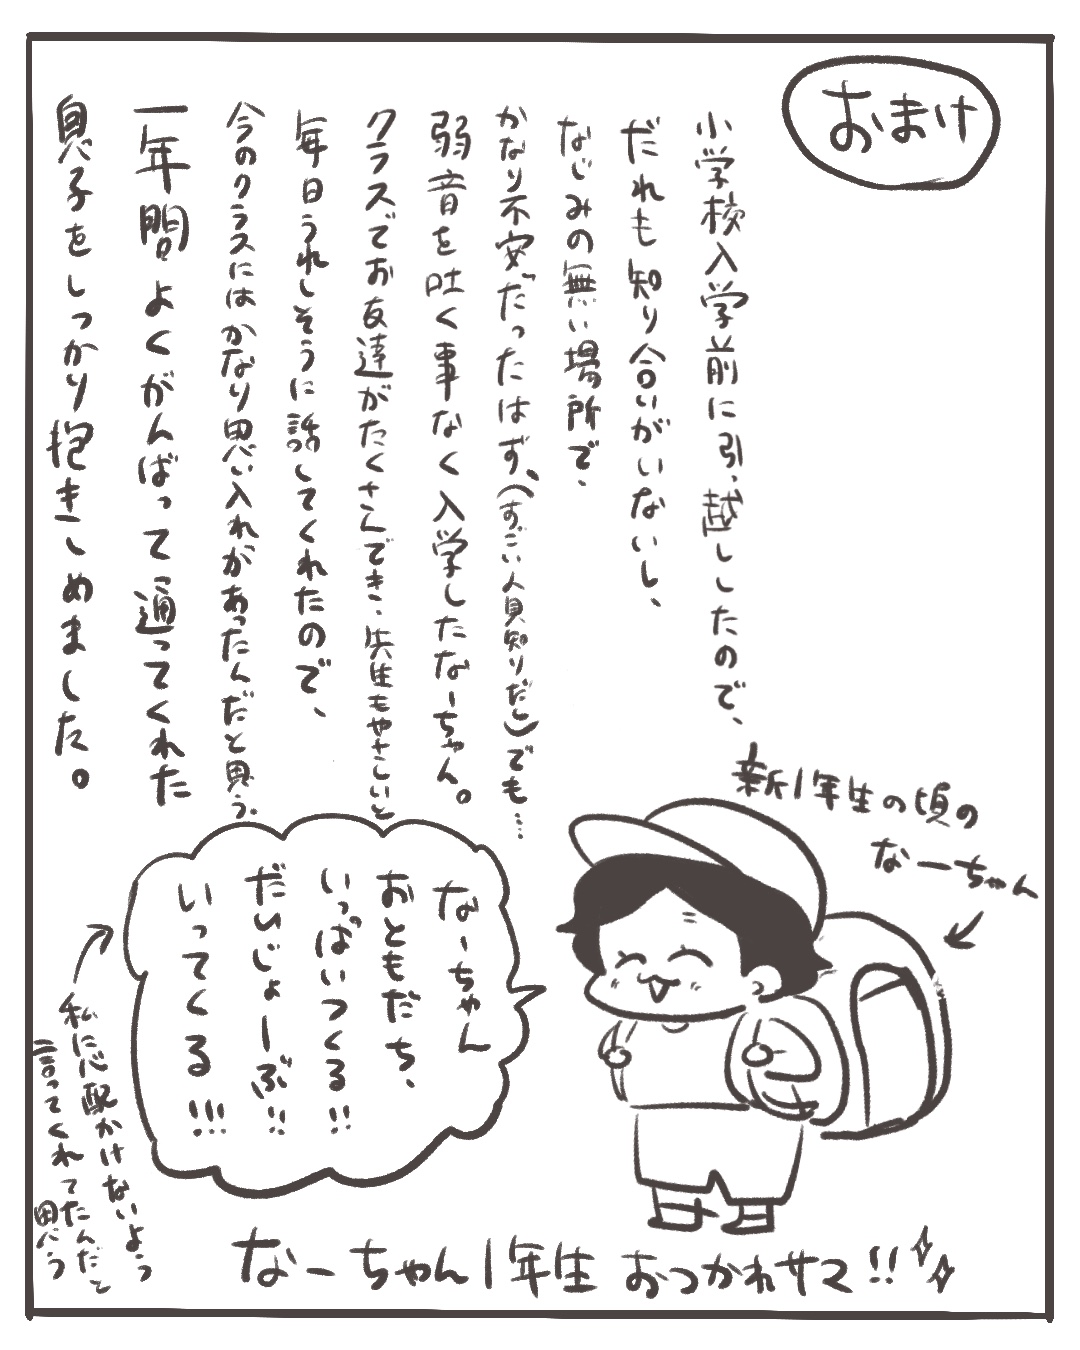 おまけ
小学校入学前に引っ越ししたので、
だれも知り合いがいないし、
なじみの無い場所で、
かなり不安だったはず、(すごい人見知りだし)でも…
弱音を吐く事なく入学したなーちゃん。
クラスでお友達がたくさんできき、先生もやさしいと
毎日うれしそうに話してくれたので、
今のクラスにはかなり思い入れがあったんだと思う。
一年間よくがんばって通ってくれた
息子をしっかり抱きしめました。
新1年生の頃の
なーちゃん
なーちゃん
おともだち、
いっぱいつくる!!
だいじょーぶ!!
いってくる!!!
私に心配かけないよう
言ってくれてたんだと思う
なーちゃん1年生 おつかれサマ!!